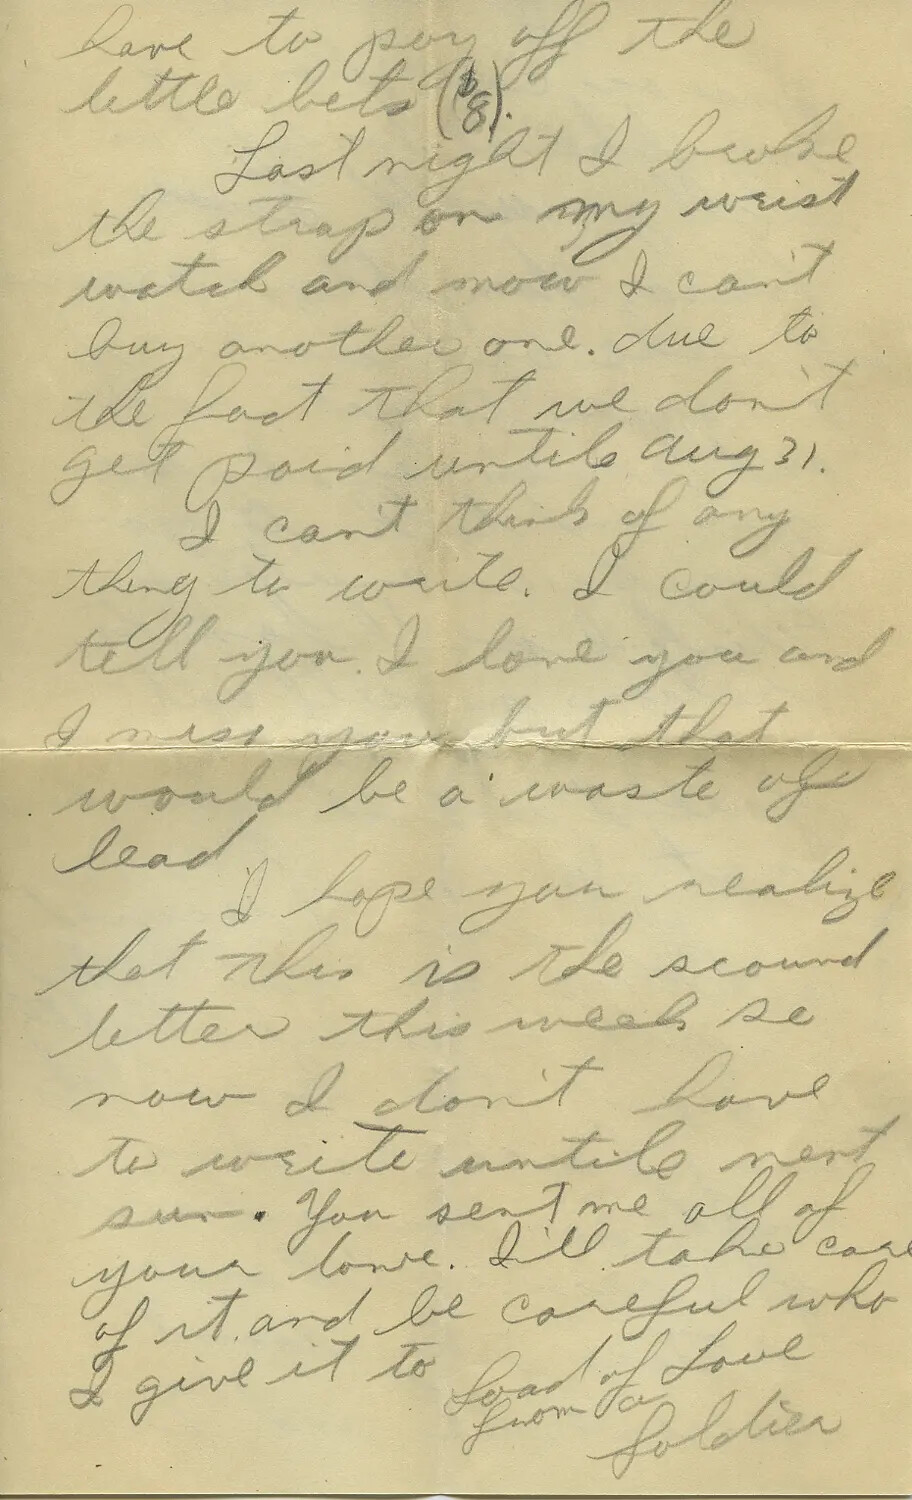 have to pay off the
little bets ($8).
Last night I broke
the strap on my wrist
watch and now I can't
buy another one. due to
the fact that we don't
get paid until Aug 31.
I can't think of any
thing to write. I could
tell you. I love you and
I miss you but that
would be a waste of
lead
I hope you realize
that this is the scound
letter this week so
now I don't have
to write until next
sun. You sent me all of
your love. I'll take care
of it. and be careful who
I give it to
Load of Love
from a
Soldier